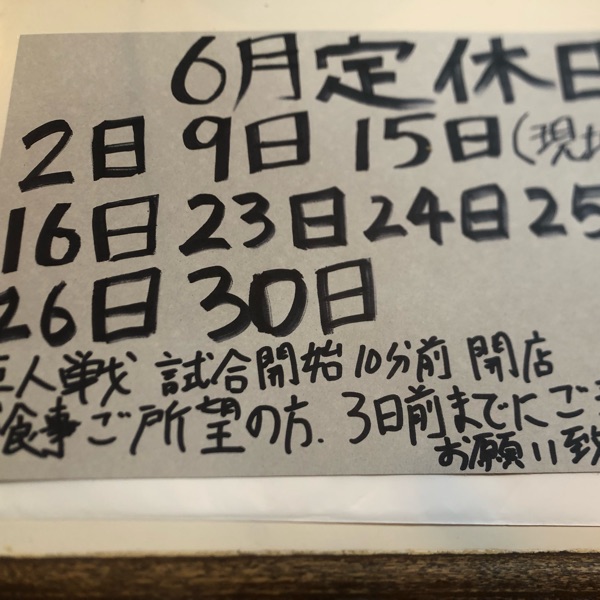 6月定休日
2日 9日 15日(現地
16日 23日 24日 25
26日 30日
巨人戦 試合開始10分前 開店
食事ご所望の方、3日前までにご
お願い致